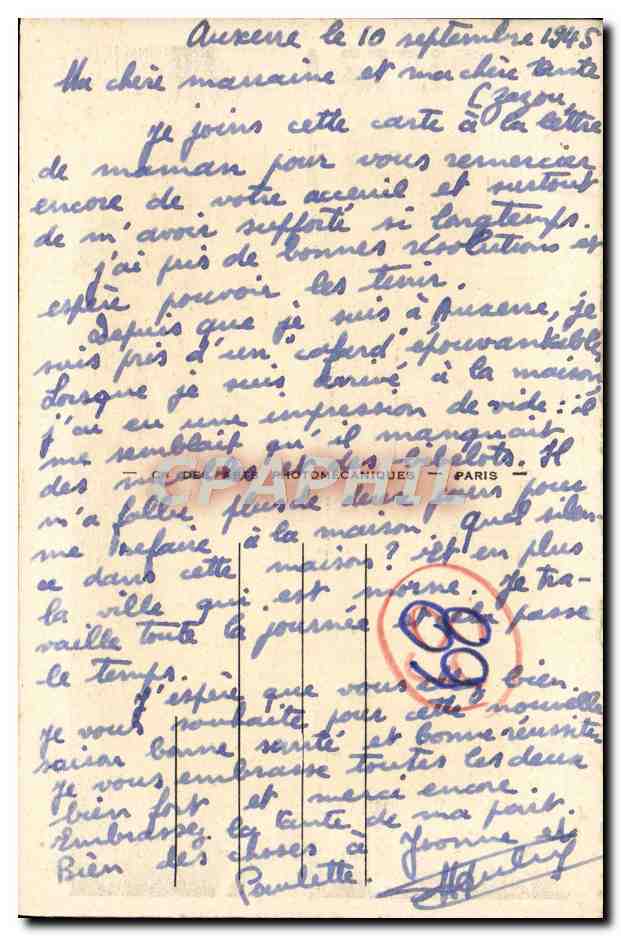 Auxerre le 10 septembre 1945
Ma chère marraine et ma chère tante
Zazou,
Je joins cette carte à la lettre
de maman pour vous remercier
encore de votre acceuil et surtout
de m'avoir supporté si longtemps.
J'ai pris de bonnes résolutions et
espère pouvoir les tenir.
Depuis que je suis à Auxerre, je
suis pris d'un "cafard" épouvantable
Lorsque je suis arrivé à la maison
j'ai eu une impression de vide : il
me semblait qu'il manquait
des des bibelots. Il
DES ARTS PHOTOMÉCANIQUES — PARIS —
CPAPHIL
m'a fallu plusieurs jours pour
me refaire à la maison. Quel silen-
ce dans cette maison ? Et en plus
la ville qui est morne. Je tra-
vaille toute la journée passe
le temps.
J'espère que vous bien
Je vous souhaite pour cette nouvelle
saison bonne santé et bonne réussite.
Je vous embrasse toutes les deux
bien fort et merci encore.
Embrassez la tante de ma part.
Bien des choses à Yvonne et
Paulette.
68
60